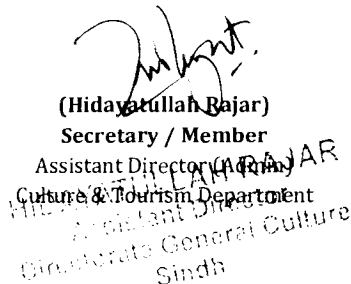 (Hidayatullah Rajar)
Secretary / Member
Assistant Director (Admin)
Culture & Tourism Department
HIDAYATULLAH RAJAR
Assistant Director
Directorate General Culture
Sindh